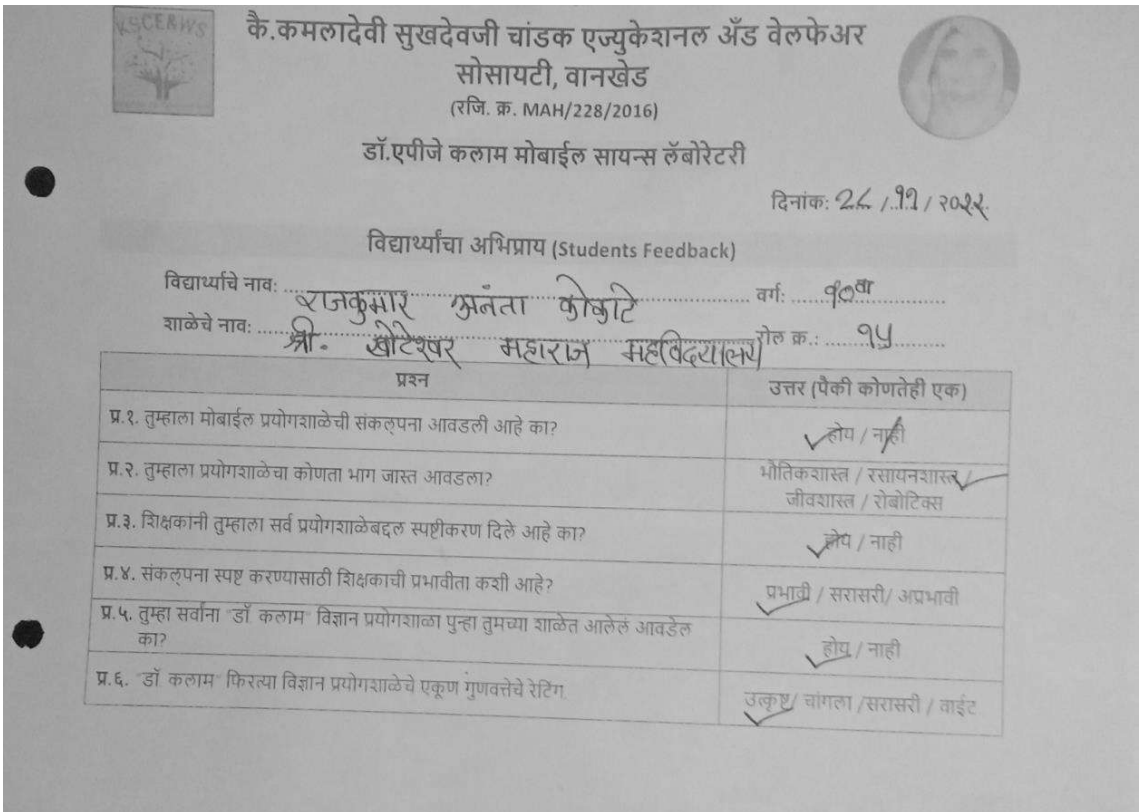 KSCE&WS
कै.कमलादेवी सुखदेवजी चांडक एज्युकेशनल अँड वेलफेअर
सोसायटी, वानखेड
(रजि. क्र. MAH/228/2016)
डॉ.एपीजे कलाम मोबाईल सायन्स लॅबोरेटरी
दिनांक: २८ / ११ / २०२२
विद्यार्थ्यांचा अभिप्राय (Students Feedback)
विद्यार्थ्याचे नाव: राजकुमार अनंता कोकाटे वर्ग: १०वा
शाळेचे नाव: श्री. खोटेश्वर महाराज महविदयालय रोल क्र.: १५
प्रश्न उत्तर (पैकी कोणतेही एक)
प्र.१. तुम्हाला मोबाईल प्रयोगशाळेची संकल्पना आवडली आहे का? होय / नाही
प्र.२. तुम्हाला प्रयोगशाळेचा कोणता भाग जास्त आवडला? भौतिकशास्त्र / रसायनशास्त्र /
जीवशास्त्र / रोबोटिक्स
प्र.३. शिक्षकांनी तुम्हाला सर्व प्रयोगशाळेबद्दल स्पष्टीकरण दिले आहे का? होय / नाही
प्र.४. संकल्पना स्पष्ट करण्यासाठी शिक्षकाची प्रभावीता कशी आहे? प्रभावी / सरासरी/ अप्रभावी
प्र.५. तुम्हा सर्वांना "डॉ कलाम" विज्ञान प्रयोगशाळा पुन्हा तुमच्या शाळेत आलेलं आवडेल
का? होय / नाही
प्र.६. "डॉ. कलाम" फिरत्या विज्ञान प्रयोगशाळेचे एकूण गुणवत्तेचे रेटिंग. उत्कृष्ट/ चांगला /सरासरी / वाईट